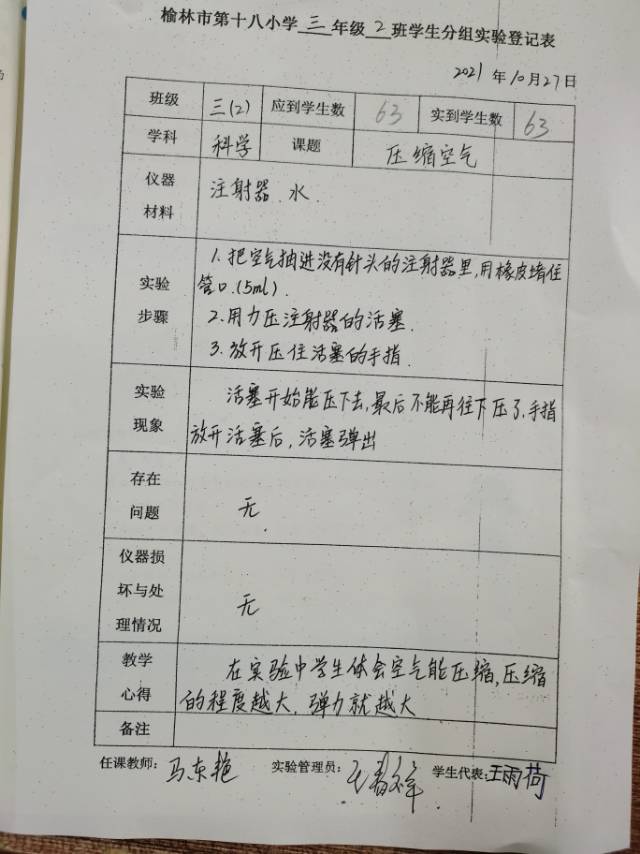 榆林市第十八小学三年级2班学生分组实验登记表
2021年10月27日
班级 三(2) 应到学生数 63 实到学生数 63
学科 科学 课题 压缩空气
仪器
材料
注射器、水
实验
步骤
1.把空气抽进没有针头的注射器里,用橡皮堵住
管口.(5ml).
2.用力压注射器的活塞.
3.放开压住活塞的手指.
实验
现象
活塞开始能压下去,最后不能再往下压了.手指
放开活塞后,活塞弹出
存在
问题
无.
仪器损
坏与处
理情况
无
教学
心得
在实验中学生体会空气能压缩,压缩
的程度越大,弹力就越大
备注
任课教师:马东艳 实验管理员: 学生代表:王雨荷